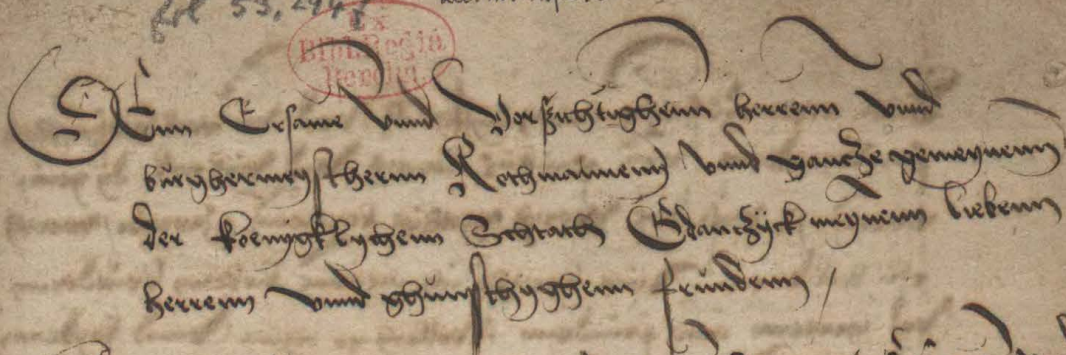 fol 53, 294
Ex
Bibl. Regia
Berolin.
Denn Ersame vnnd Vorsichtighenn herrenn vnnd
bürghermeystherenn Rethmannenn vnnd gantcze gemeynenn
der koenygklychenn Schtath Gdanczyck meynenn liebenn
herrenn vnnd ghünsthyghenn fründenn /